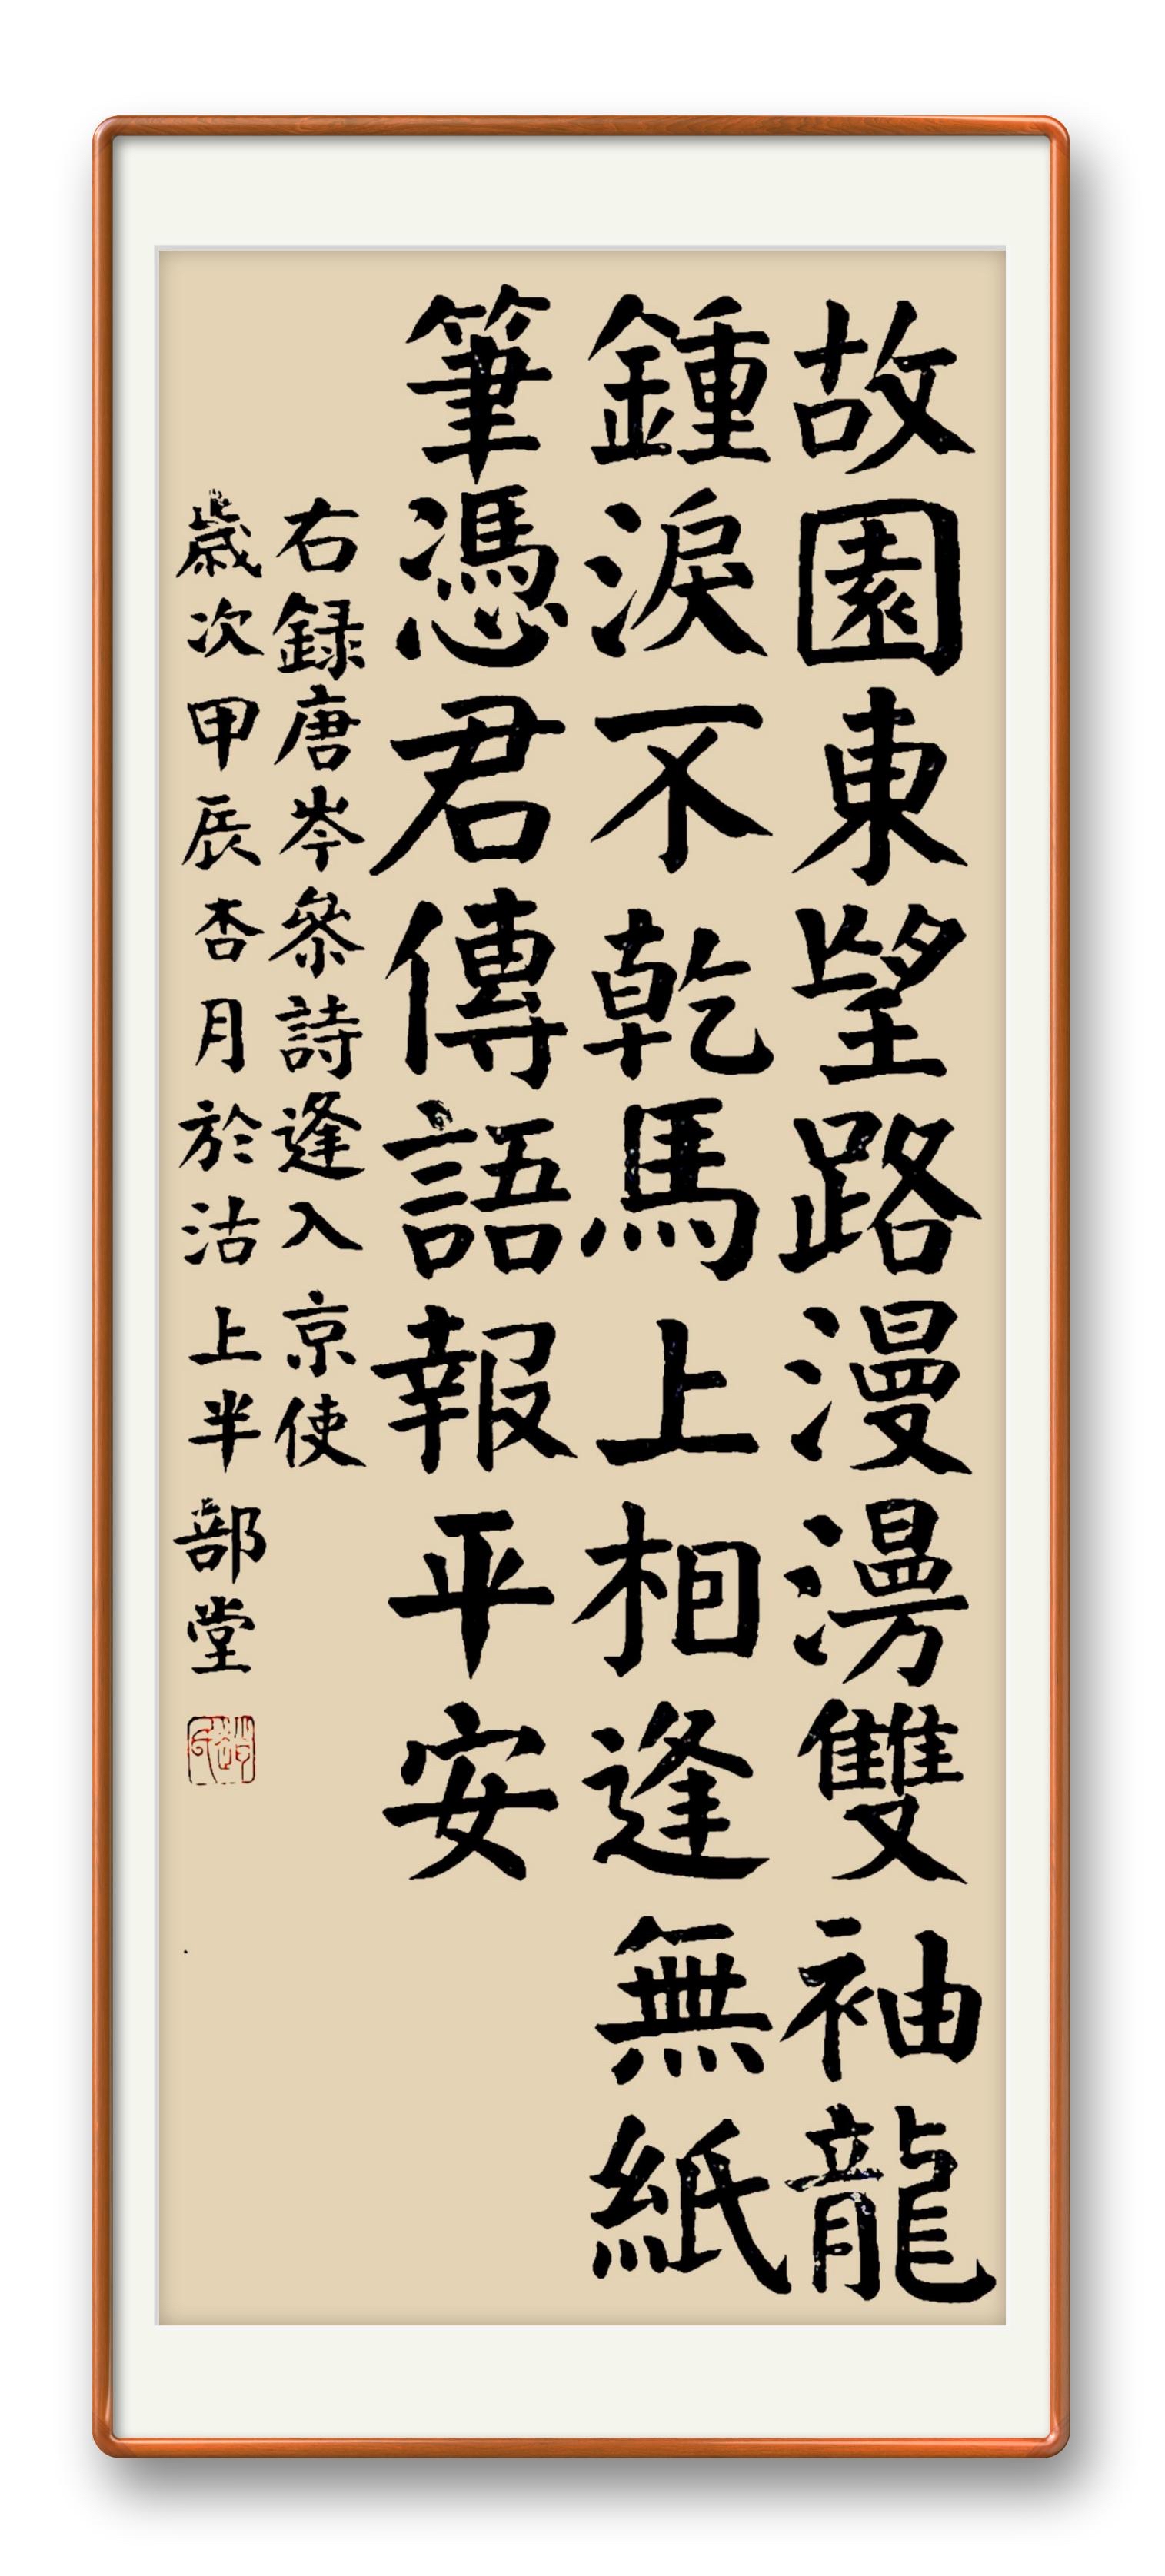 故園東望路漫漫雙袖龍
鍾淚不乾馬上相逢無紙
筆憑君傳語報平安
右録唐岑參詩逢入京使
歲次甲辰杏月於沽上半部堂